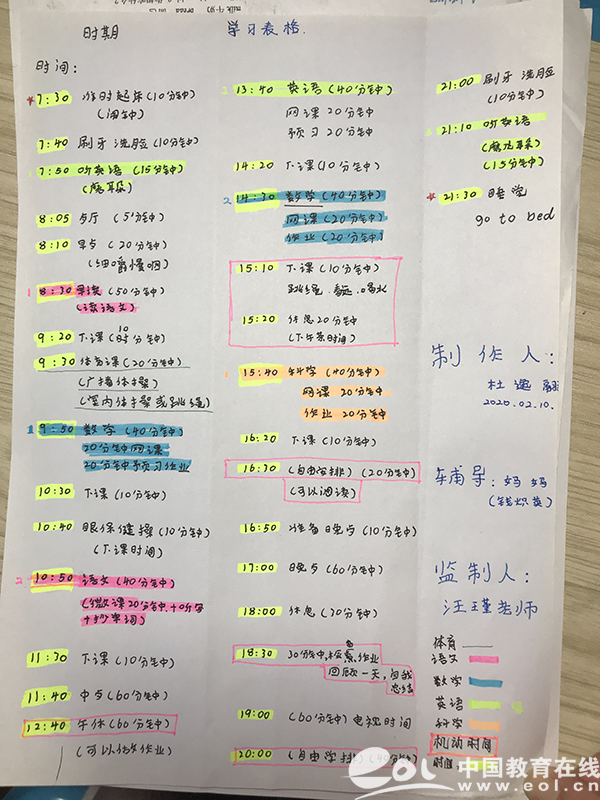 时期
学习表格.
时间:
7:30 准时起床(10分钟)
(闹钟)
7:40 刷牙 洗脸(10分钟)
7:50 听英语(15分钟)
(磨耳朵)
8:05
(5分钟)
8:10 早点(20分钟)
(细嚼慢咽)
1 8:30 早读(50分钟)
(读语文)
9:20 下课(10分钟)
9:30 体育课(20分钟)
(广播体操)
(室内体操或跳绳)
1 9:50 数学(40分钟)
20分钟网课
20分钟预习作业
10:30 下课(10分钟)
10:40 眼保健操(10分钟)
(下课时间)
2 10:50 语文(40分钟)
(微课20分钟,+听写
+抄单词)
11:30 下课(10分钟)
11:40 中歺(60分钟)
12:40 午休(60分钟)
(可以做作业)
2 13:40 英语(40分钟)
网课20分钟
预习20分钟
14:20 下课(10分钟)
2 14:30 数学(40分钟)
网课(20分钟)
作业(20分钟)
15:10 下课(10分钟)
跳绳.看远.喝水
15:20 休息20分钟
(下午茶时间)
15:40 科学(40分钟)
网课20分钟
作业20分钟
16:20 下课(10分钟)
16:30 (自由安排)(20分钟)
(可以阅读)
16:50 准备晚歺(10分钟)
17:00 晚歺(60分钟)
18:00 休息(30分钟)
18:30 30分钟,检查作业
回顾一天,自我
总结
19:00 (60分钟)电视时间
20:00 (自由安排)
21:00 刷牙 洗脸
(10分钟)
21:10 听英语
(磨耳朵)
(15分钟)
21:30 睡觉
go to bed
制作人:
杜
2020.02.10.
辅导:妈妈
监制人:
汪瑾老师
体育
语文
数学
英语
科学
机动时间
时间
eol 中国教育在线
www.eol.cn